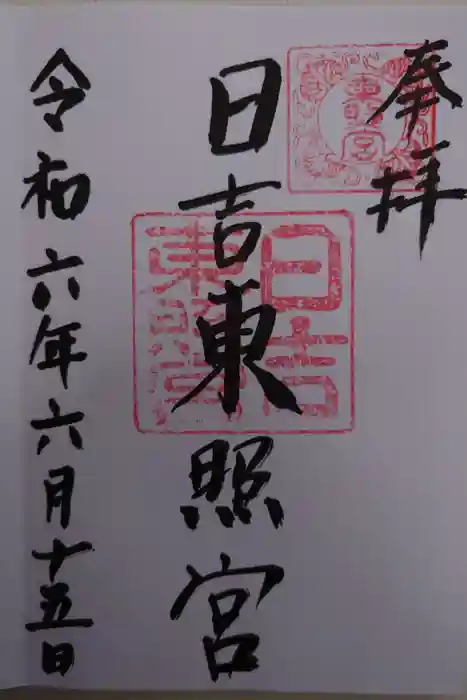 奉拝
東照宮
日吉東照宮
日吉東照宮
令和六年六月十五日